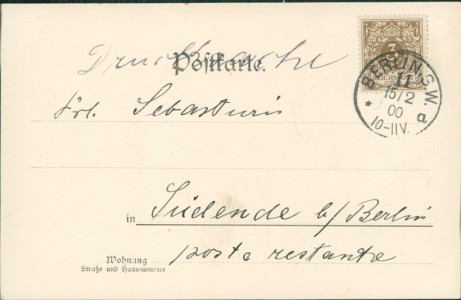 Drucksache
Postkarte.
3
BERLIN, S.W.
11
15/2
00
10-11V.
* d
Frl. Sebasturis
in Südende b/Berlin
poste restante
Wohnung
Straße und Hausnummer